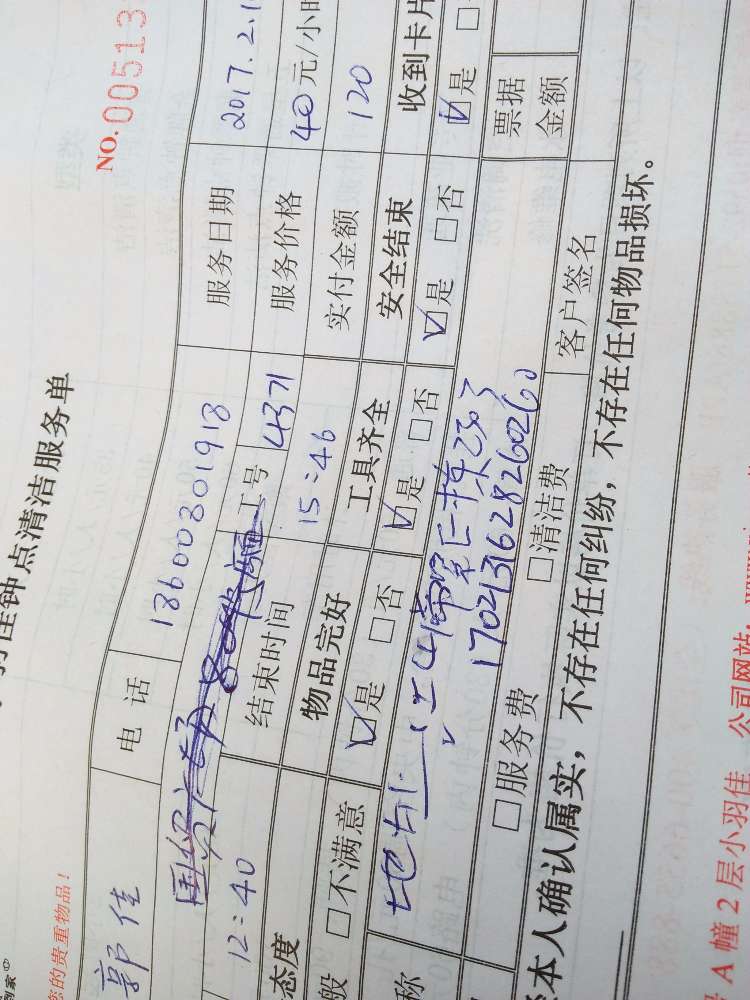 羽佳钟点清洁服务单
您的贵重物品！
NO. 00513
郭佳 电话 18600301918 服务日期 2017.2.1
国贸
12:40 结束时间 15:46 工号 4371 服务价格 40元/小时
实付金额 120
态度 物品完好 工具齐全 安全结束 收到卡片
般 □不满意 ☑是 □否 ☑是 □否 ☑是 □否 ☑是
称 地址
1702131628260260
票据金额
□服务费 □清洁费 客户签名
本人确认属实，不存在任何纠纷，不存在任何物品损坏。
A 幢 2 层小羽佳 公司网站：www